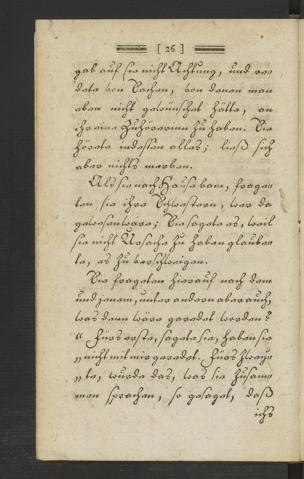 [ 26 ]
gab auf sie nicht Achtung, und re-
dete von Sachen, von denen man
eben nicht gewünschet hätte, an
ihr eine Zuhörerinn zu haben. Sie
hörete indessen alles; ließ sich
aber nichts merken.
Als sie nach Hause kam, frage-
ten sie ihre Schwestern, wer da
gewesen wäre; Sie sagete es, weil
sie nicht Ursache zu haben glaube-
te, es zu verschweigen.
Sie frageten hierauf nach dem
und jenem, unter andern aber auch,
was denn wäre geredet worden?
„ Fürs erste, sagete sie, haben sie
„ nicht mit mir geredet. Fürs zwey-
„ te, wurde das, was sie zusam-
men sprachen, so gesaget, daß
ichs